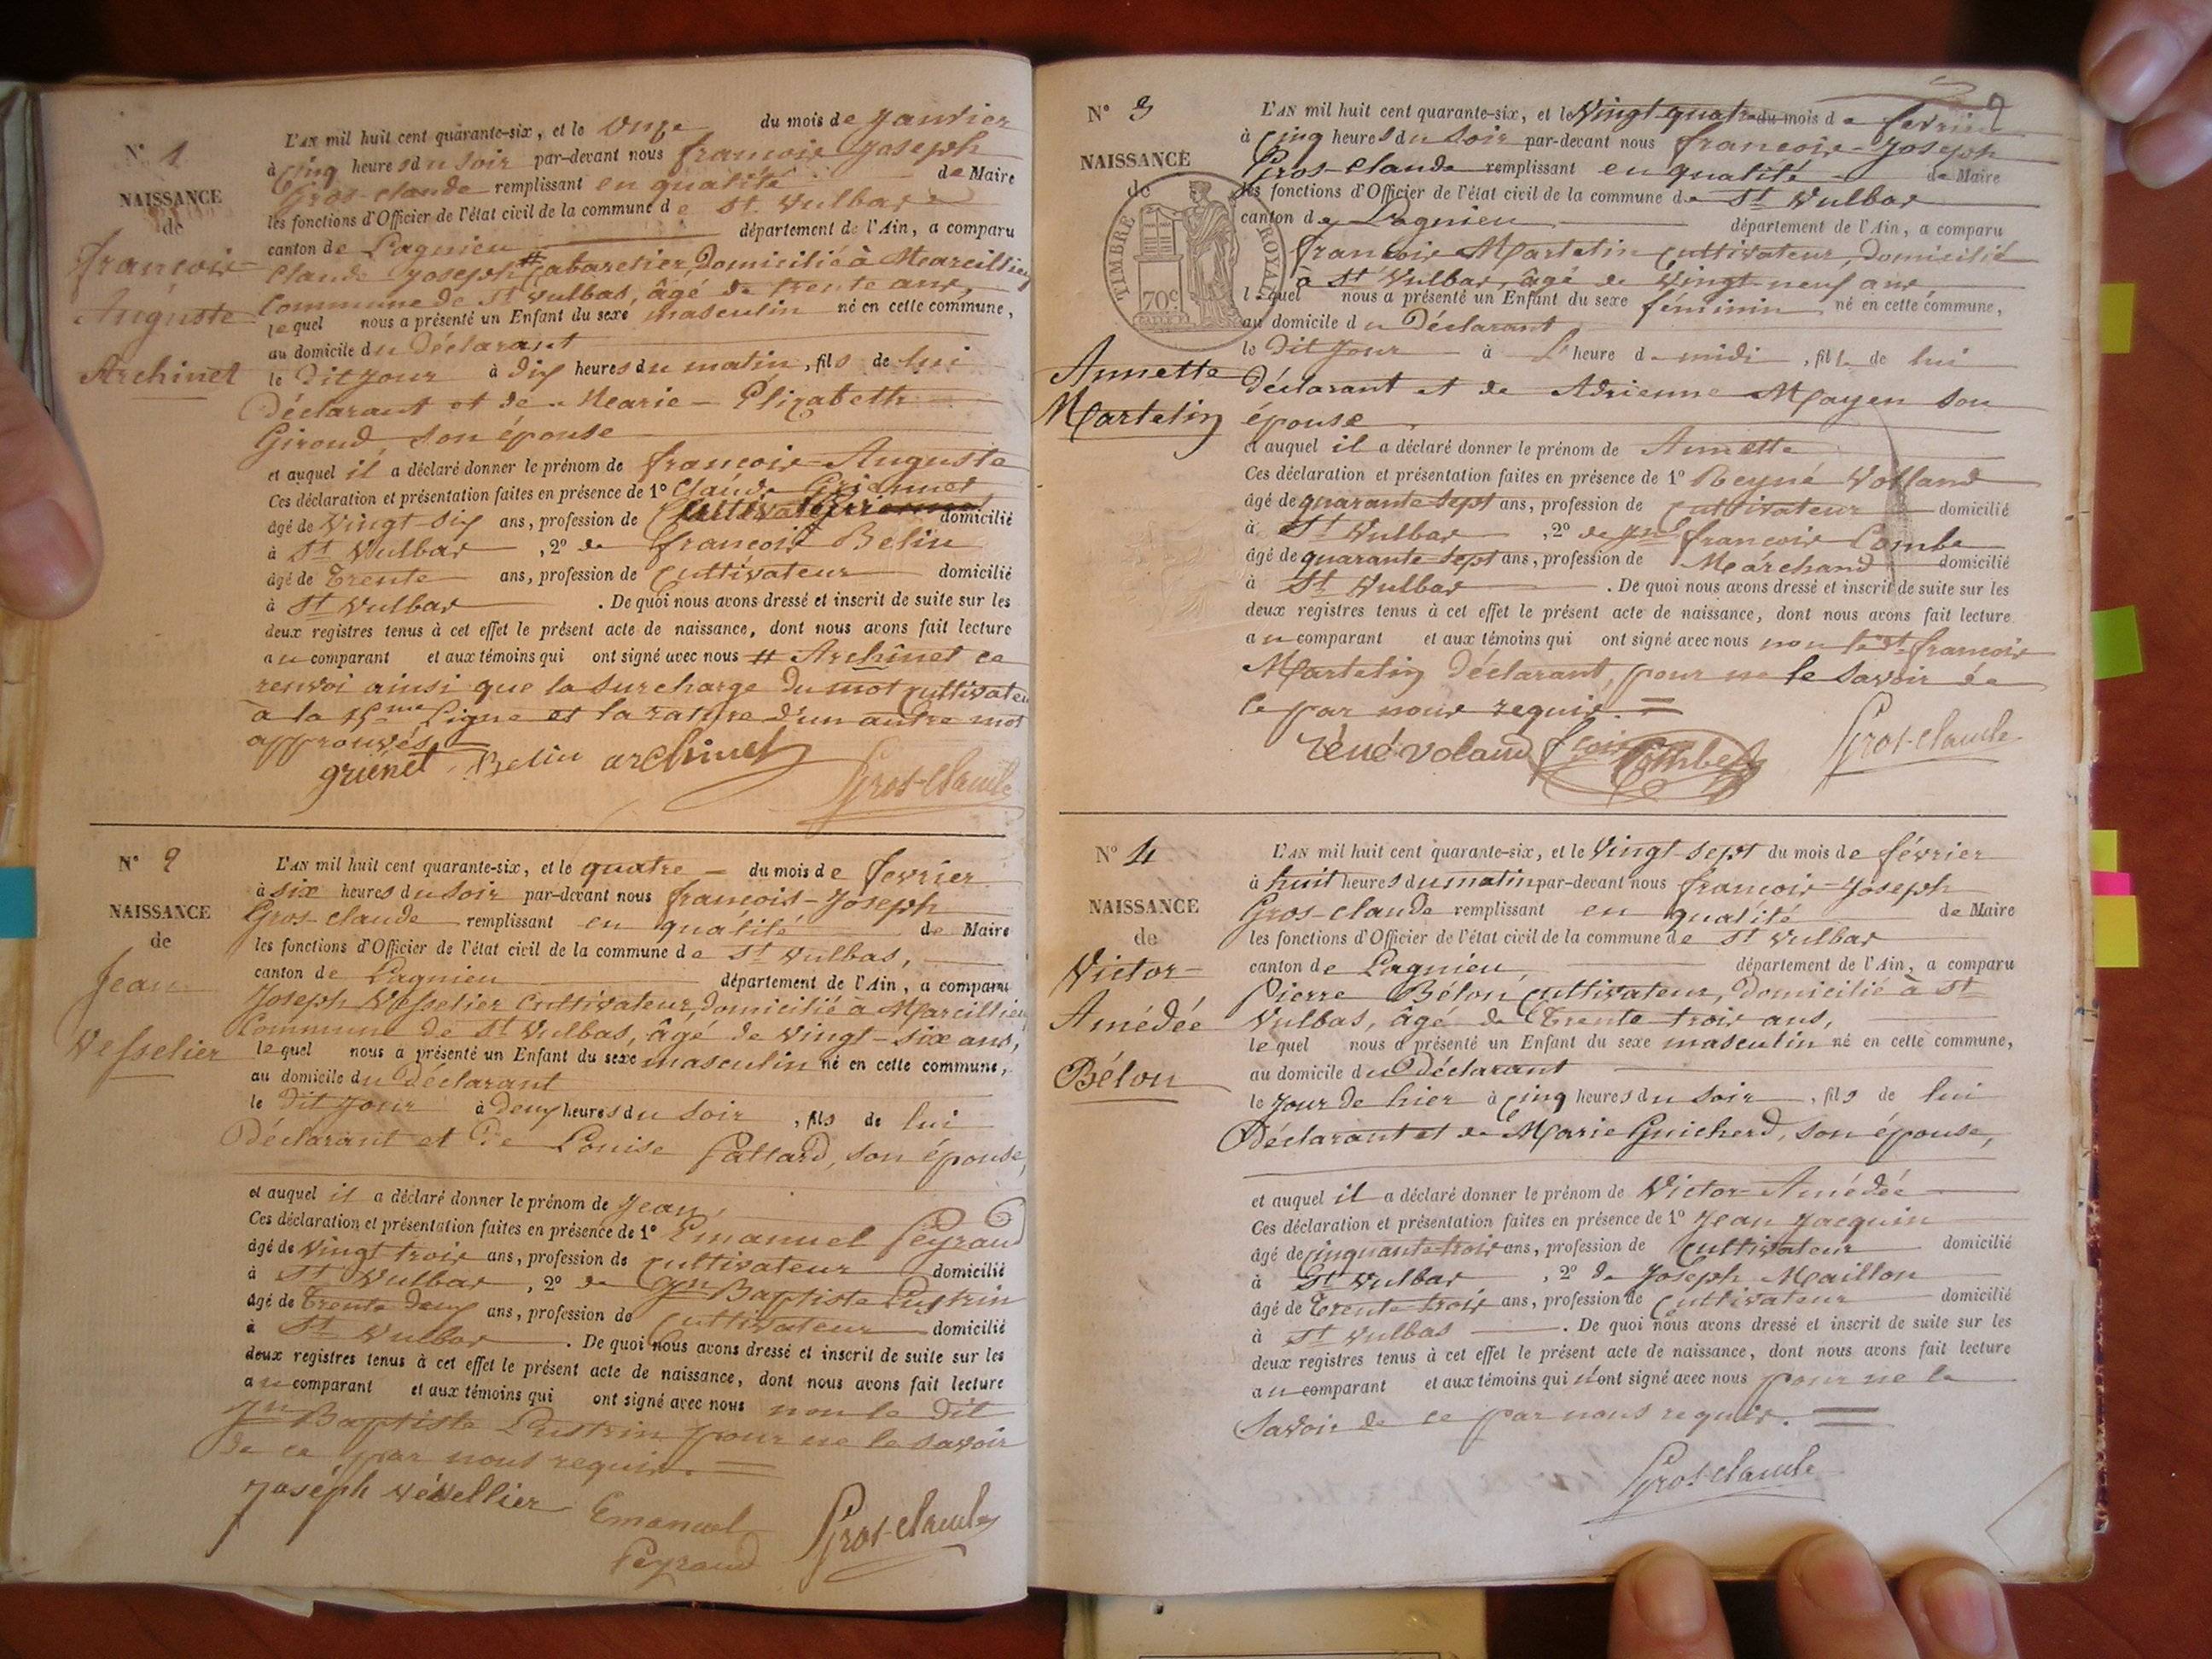 N° 1
NAISSANCE
de
françois
Auguste
Archinet
L'AN mil huit cent quarante-six, et le onze du mois de janvier
à cinq heures du soir par-devant nous françois Joseph
Gros-claude remplissant en qualité de Maire
les fonctions d'Officier de l'état civil de la commune de St. Vulbas
canton de Lagnieu département de l'Ain, a comparu
Claude Joseph # Cabaretier, domicilié à Marcillieu
Commune de St Vulbas, âgé de trente ans,
lequel nous a présenté un Enfant du sexe masculin né en cette commune,
au domicile du Déclarant
le dit jour à dix heures du matin, fils de lui
Déclarant et de Marie-Elizabeth
Giroud, son épouse
et auquel il a déclaré donner le prénom de françois-Auguste
Ces déclaration et présentation faites en présence de 1° Claude
âgé de vingt-six ans, profession de Cultivateur domicilié
à St Vulbas, 2° de françois Belin
âgé de Trente ans, profession de Cultivateur domicilié
à St Vulbas. De quoi nous avons dressé et inscrit de suite sur les
deux registres tenus à cet effet le présent acte de naissance, dont nous avons fait lecture
au comparant et aux témoins qui ont signé avec nous # Archinet ce
renvoi ainsi que la surcharge du mot cultivateur
à la 15me ligne et la rature d'un autre mot
approuvés
griénét Belin archinet
Gros-claude
N° 2
NAISSANCE
de
Jean
Vesselier
L'AN mil huit cent quarante-six, et le quatre du mois de fevrier
à six heures du soir par-devant nous françois-Joseph
Gros-claude remplissant en qualité de Maire
les fonctions d'Officier de l'état civil de la commune de St Vulbas,
canton de Lagnieu département de l'Ain, a comparu
Joseph Vesselier Cultivateur, domicilié à Marcillieu
Commune de St Vulbas, âgé de vingt-six ans,
lequel nous a présenté un Enfant du sexe masculin né en cette commune,
au domicile du Déclarant
le dit jour à deux heures du soir, fils de lui
Déclarant et de Louise Pattard, son épouse,
et auquel il a déclaré donner le prénom de Jean,
Ces déclaration et présentation faites en présence de 1° Emanuel Peyraud
âgé de vingt trois ans, profession de cultivateur domicilié
à St Vulbas, 2° de Jn Baptiste
âgé de Trente deux ans, profession de Cultivateur domicilié
à St Vulbas. De quoi nous avons dressé et inscrit de suite sur les
deux registres tenus à cet effet le présent acte de naissance, dont nous avons fait lecture
au comparant et aux témoins qui ont signé avec nous non le dit
Jn Baptiste pour ne le savoir
de ce par nous requis.
Joséph vésellier Emanuel
Peyraud
Gros-claude
N° 3
NAISSANCE
de
TIMBRE ROYAL
70c
Annette
Martelin
L'AN mil huit cent quarante-six, et le Vingt-quatre du mois de fevrier
à cinq heures du soir par-devant nous françois-Joseph
Gros-claude remplissant en qualité de Maire
les fonctions d'Officier de l'état civil de la commune de St Vulbas
canton de Lagnieu département de l'Ain, a comparu
françois Martelin Cultivateur, domicilié
à St Vulbas, âgé de vingt-neuf ans,
lequel nous a présenté un Enfant du sexe féminin né en cette commune,
au domicile du Déclarant
le dit jour à l'heure de midi, fille de lui
déclarant et de Adrienne Mayen son
épouse
et auquel il a déclaré donner le prénom de Annette
Ces déclaration et présentation faites en présence de 1° Reyné Volland
âgé de quarante sept ans, profession de cultivateur domicilié
à St Vulbas, 2° de françois Combe
âgé de quarante sept ans, profession de Marchand domicilié
à St Vulbas. De quoi nous avons dressé et inscrit de suite sur les
deux registres tenus à cet effet le présent acte de naissance, dont nous avons fait lecture
au comparant et aux témoins qui ont signé avec nous non le dt françois
Martelin déclarant, pour ne le savoir de
ce par nous requis.
réné voland fçois Combe
Gros-claude
N° 4
NAISSANCE
de
Victor-
Amédée
Bélon
L'AN mil huit cent quarante-six, et le Vingt-sept du mois de février
à huit heures du matin par-devant nous françois-Joseph
Gros-claude remplissant en qualité de Maire
les fonctions d'Officier de l'état civil de la commune de St Vulbas
canton de Lagnieu, département de l'Ain, a comparu
Pierre Bélon Cultivateur, domicilié à St
Vulbas, âgé de Trente-trois ans,
lequel nous a présenté un Enfant du sexe masculin né en cette commune,
au domicile du Déclarant
le jour de hier à cinq heures du soir, fils de lui
Déclarant et de Marie Guicherd, son épouse,
et auquel il a déclaré donner le prénom de Victor-Amédée
Ces déclaration et présentation faites en présence de 1° Jean Jacquin
âgé de cinquante-trois ans, profession de Cultivateur domicilié
à St Vulbas, 2° de Joseph Maillon
âgé de Trente-trois ans, profession de Cultivateur domicilié
à St Vulbas. De quoi nous avons dressé et inscrit de suite sur les
deux registres tenus à cet effet le présent acte de naissance, dont nous avons fait lecture
au comparant et aux témoins qui n'ont signé avec nous pour ne le
Savoir de ce par nous requis.
Gros-claude